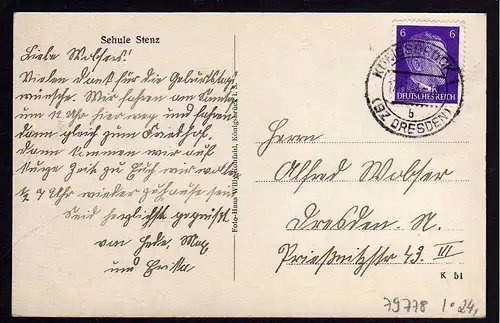 Schule Stenz
Liebe Wobsers!
Vielen Dank für die Geburtstags
wünsche. Wir fahren am Sonntag
um 12 Uhr hier weg und fahren
dann gleich zum Friedhof,
dann kommen wir auf
kurze Zeit zu Euch wir wollen
½ 7 Uhr wieder zuhause sein
Seid herzlichst gegrüsst
von Hede, Max
und Christa
Foto-Haus Königsbrück i. S.
6 6
DEUTSCHES REICH
KÖNIGSBRÜCK
b
(BZ DRESDEN)
Herrn
Alfred Wobser
Dresden. N.
Prießnitzstr 43. III
K 51
79778 1° 24,